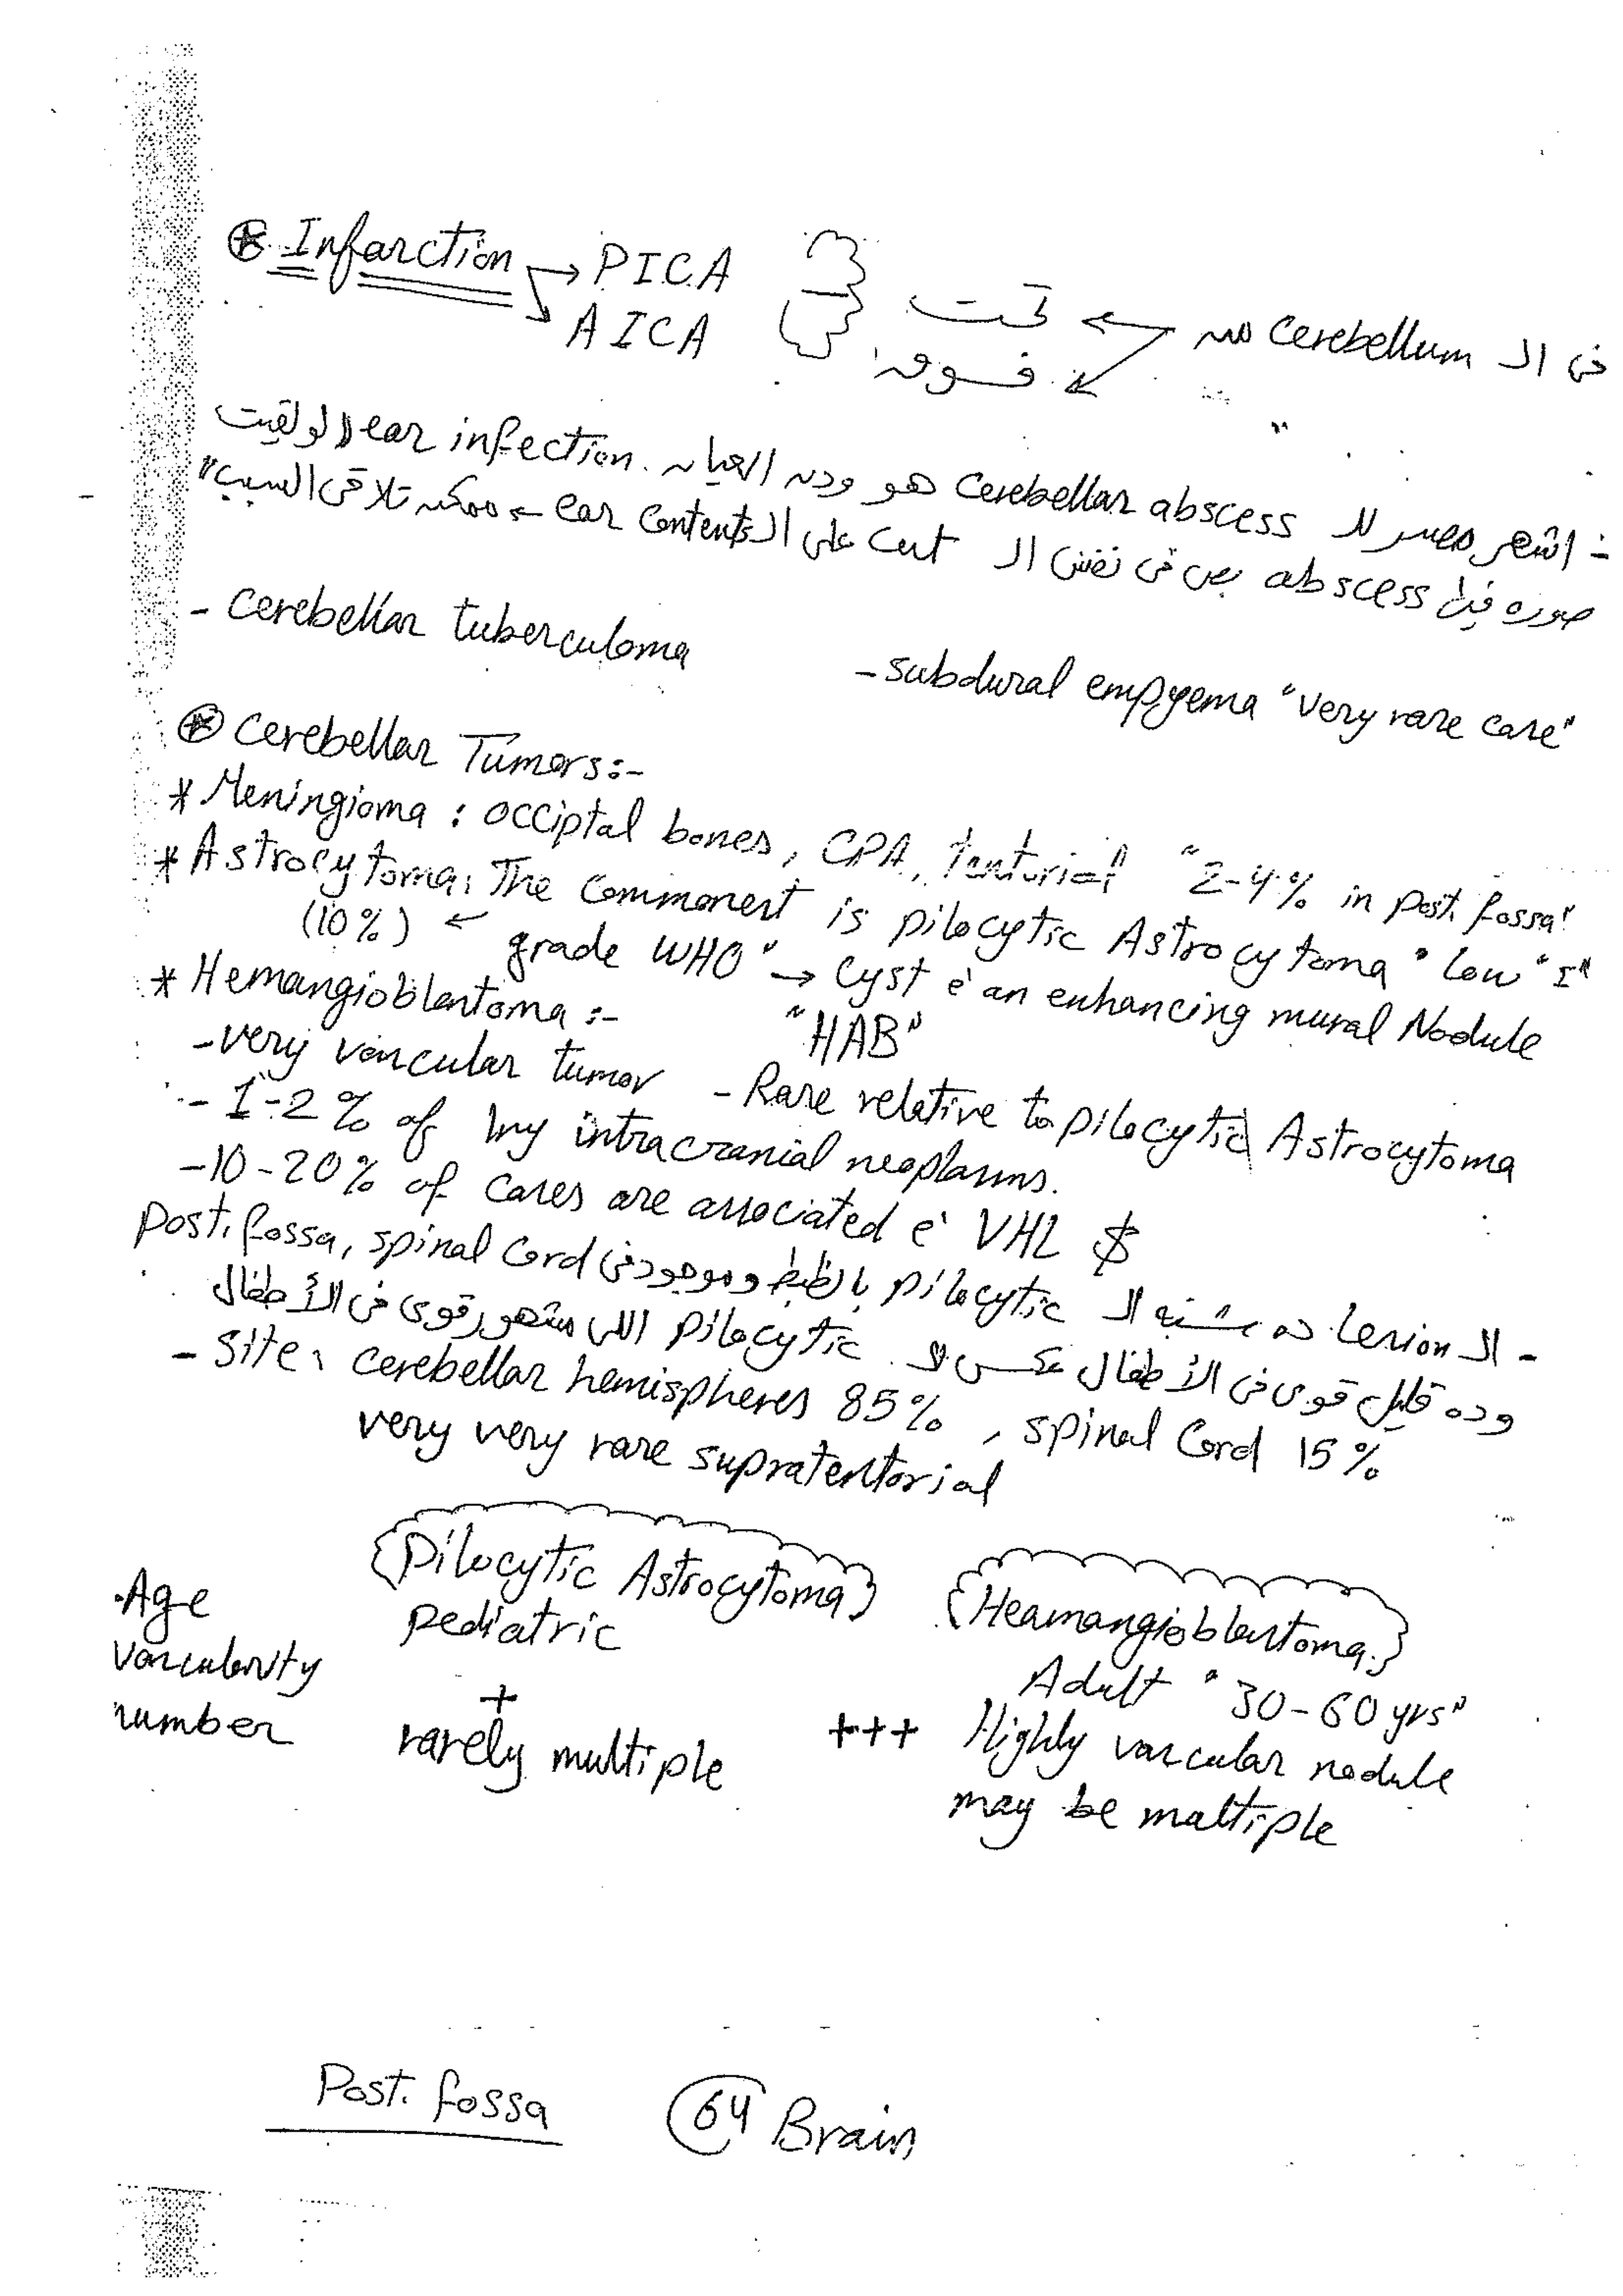 ⊛ Infarction → PICA
↳ AICA
فى الـ cerebellum بس ← تحت
← فوق
- اشهر مصدر للـ cerebellar abscess هو ودن العيان ear infection. لو لقيت
صوره فيها abscess بص فى نفس الـ cut على الـ ear contents ← ممكن تلاقى السبب"
- Cerebellar tuberculoma
- subdural empyema "very rare case"
⊛ Cerebellar Tumors:-
* Meningioma : occiptal bones, CPA, tentorial "2-4% in post. fossa"
* Astrocytoma: The commonest is pilocytic Astrocytoma "low "I"
(10%) ← grade WHO" → cyst è an enhancing mural Nodule
* Hemangioblastoma :- "HAB"
- very vascular tumor - Rare relative to pilocytic Astrocytoma
- 1-2% of 1ry intracranial neoplasms.
- 10-20% of cases are associated è VHL $
- الـ Lesion ده يشبه الـ pilocytic بالظبط وموجود فى post. fossa, spinal cord
وده قليل قوى فى الأطفال عكس الـ pilocytic اللى مشهور قوى فى الأطفال
- Site: cerebellar hemispheres 85%, spinal Cord 15%
very very rare supratentorial
{Pilocytic Astrocytoma} {Heamangioblastoma.}
Age pediatric Adult "30-60 yrs"
vascularity + +++ Highly vascular nodule
number rarely multiple may be maltiple
Post. fossa 64 Brain